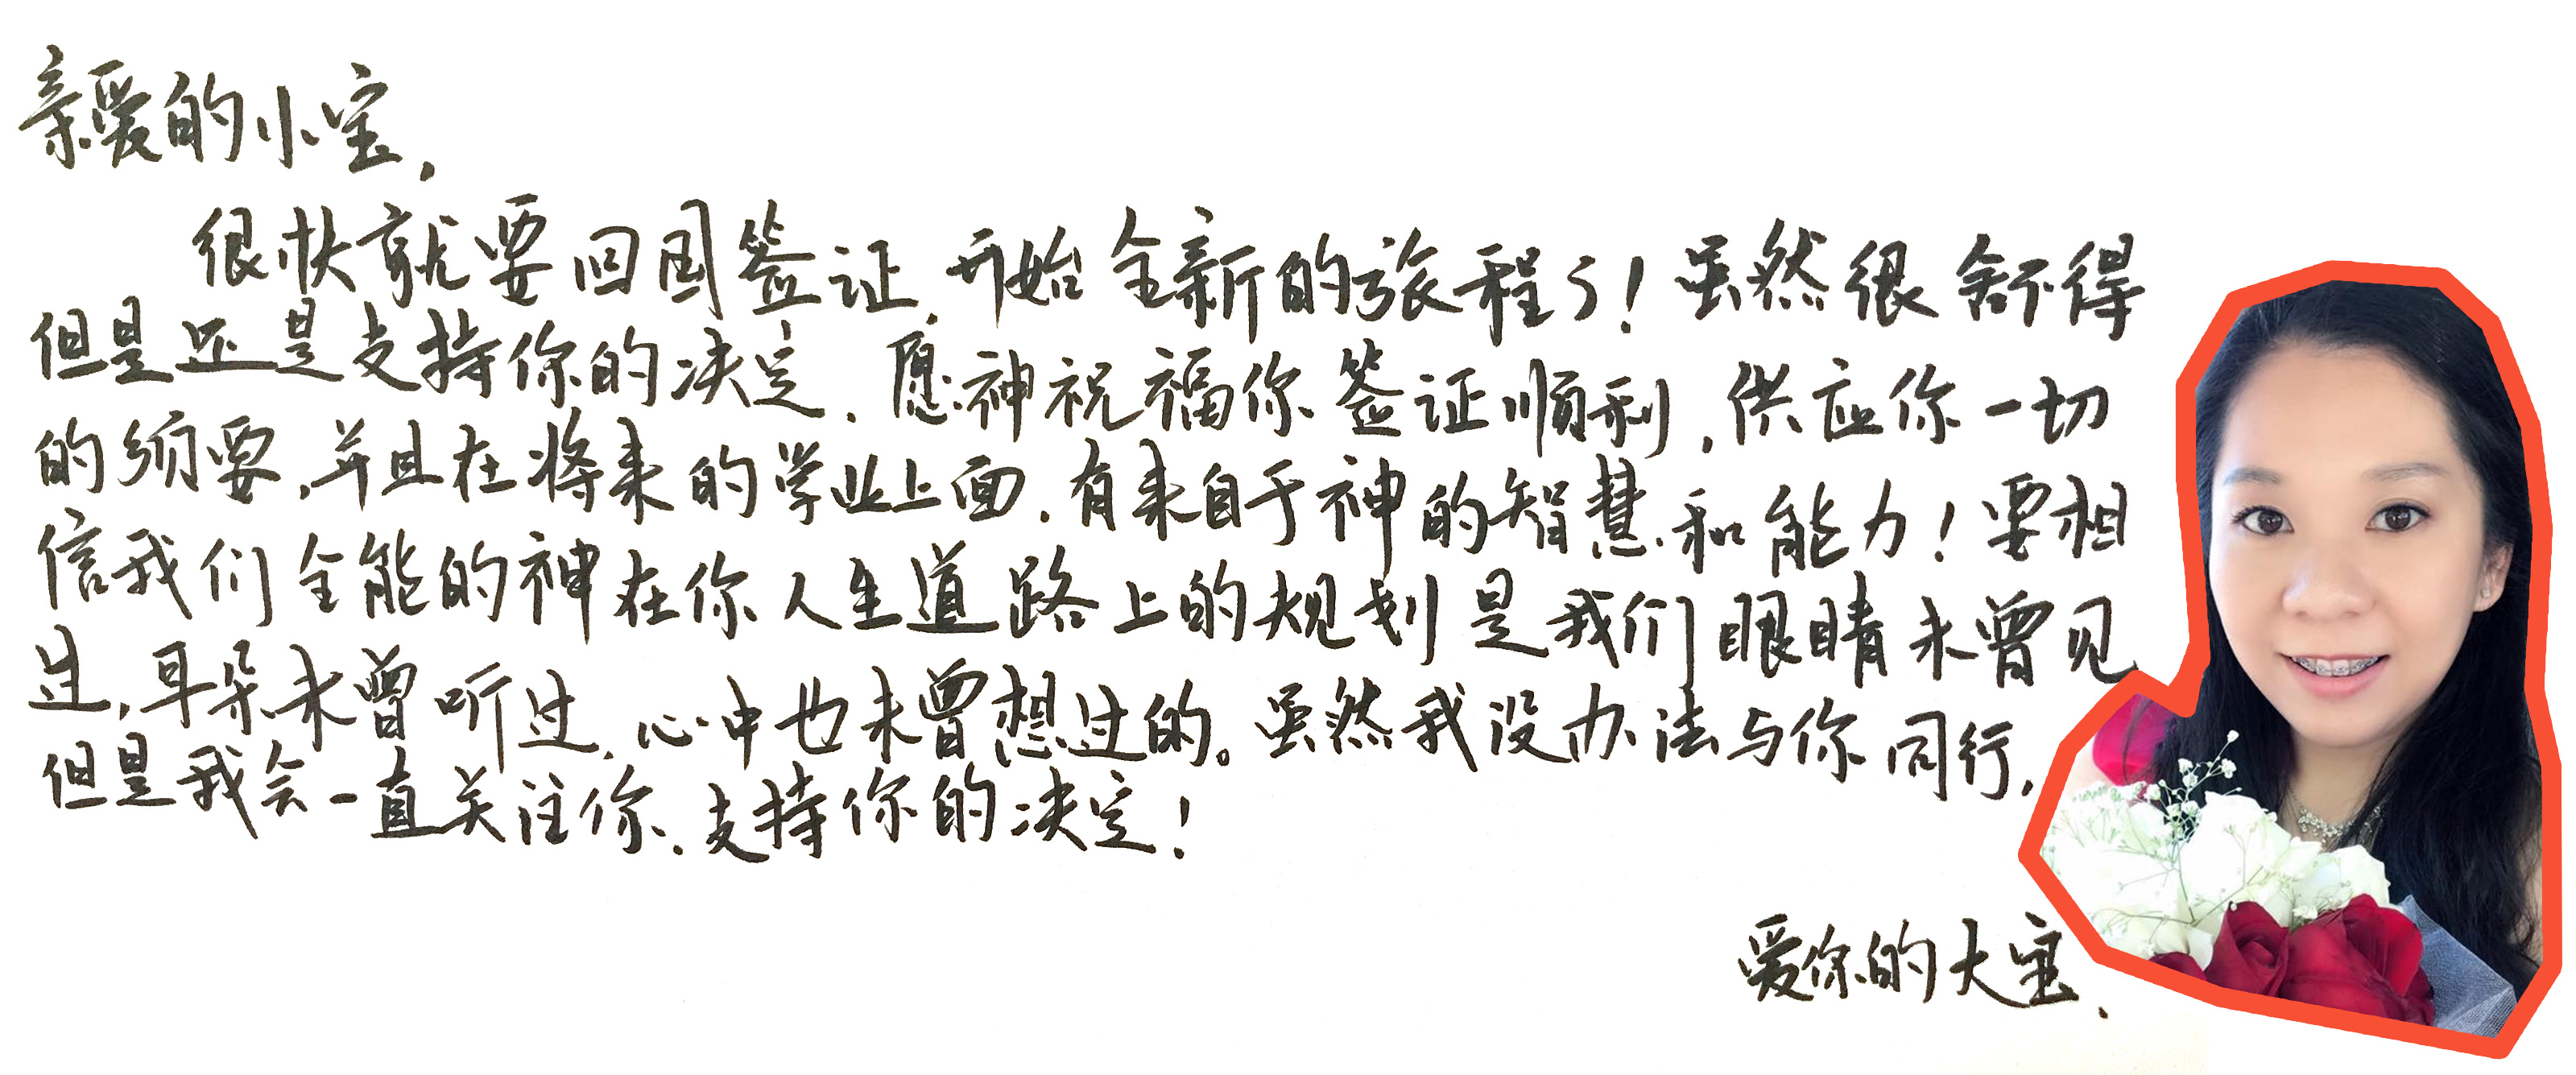 亲爱的小宝,
很快就要回国签证,开始全新的旅程了!虽然很舍不得
但是还是支持你的决定.愿神祝福你签证顺利,供应你一切
的须要,并且在将来的学业上面.有来自于神的智慧和能力!要相
信我们全能的神在你人生道路上的规划是我们眼睛未曾见
过,耳朵未曾听过,心中也未曾想过的。虽然我没办法与你同行,
但是我会一直关注你.支持你的决定!
爱你的大宝.